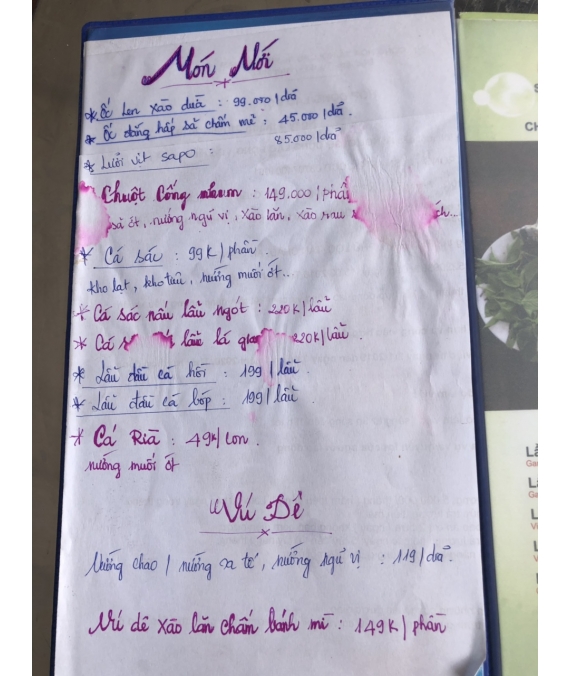 Món Mới
* Ốc Len xào dừa : 99.000 | dĩa
* Ốc đắng hấp sả chấm mẻ : 45.000 | dĩa.
* Lưỡi vịt sapo : 85.000 | dĩa
Chuột Cống nhum : 149.000 | phần
sả ớt, nướng ngũ vị, xào lăn, xào rau
* Cá sác : 99K | phần.
kho lạt, kho tiêu, nướng muối ớt...
* Cá sác nấu lẩu ngọt : 220K | lẩu
* Cá lẩu lá giang 220K | lẩu.
* Lẩu đầu cá hồi : 199 | lẩu.
* Lẩu đầu cá bốp : 199 | lẩu
* Cá Rìa : 49K | con.
nướng muối ớt
Vú Dê
Nướng chao | nướng sa tế, nướng ngũ vị : 119 | dĩa.
Vú dê xào lăn chấm bánh mì : 149K | phần